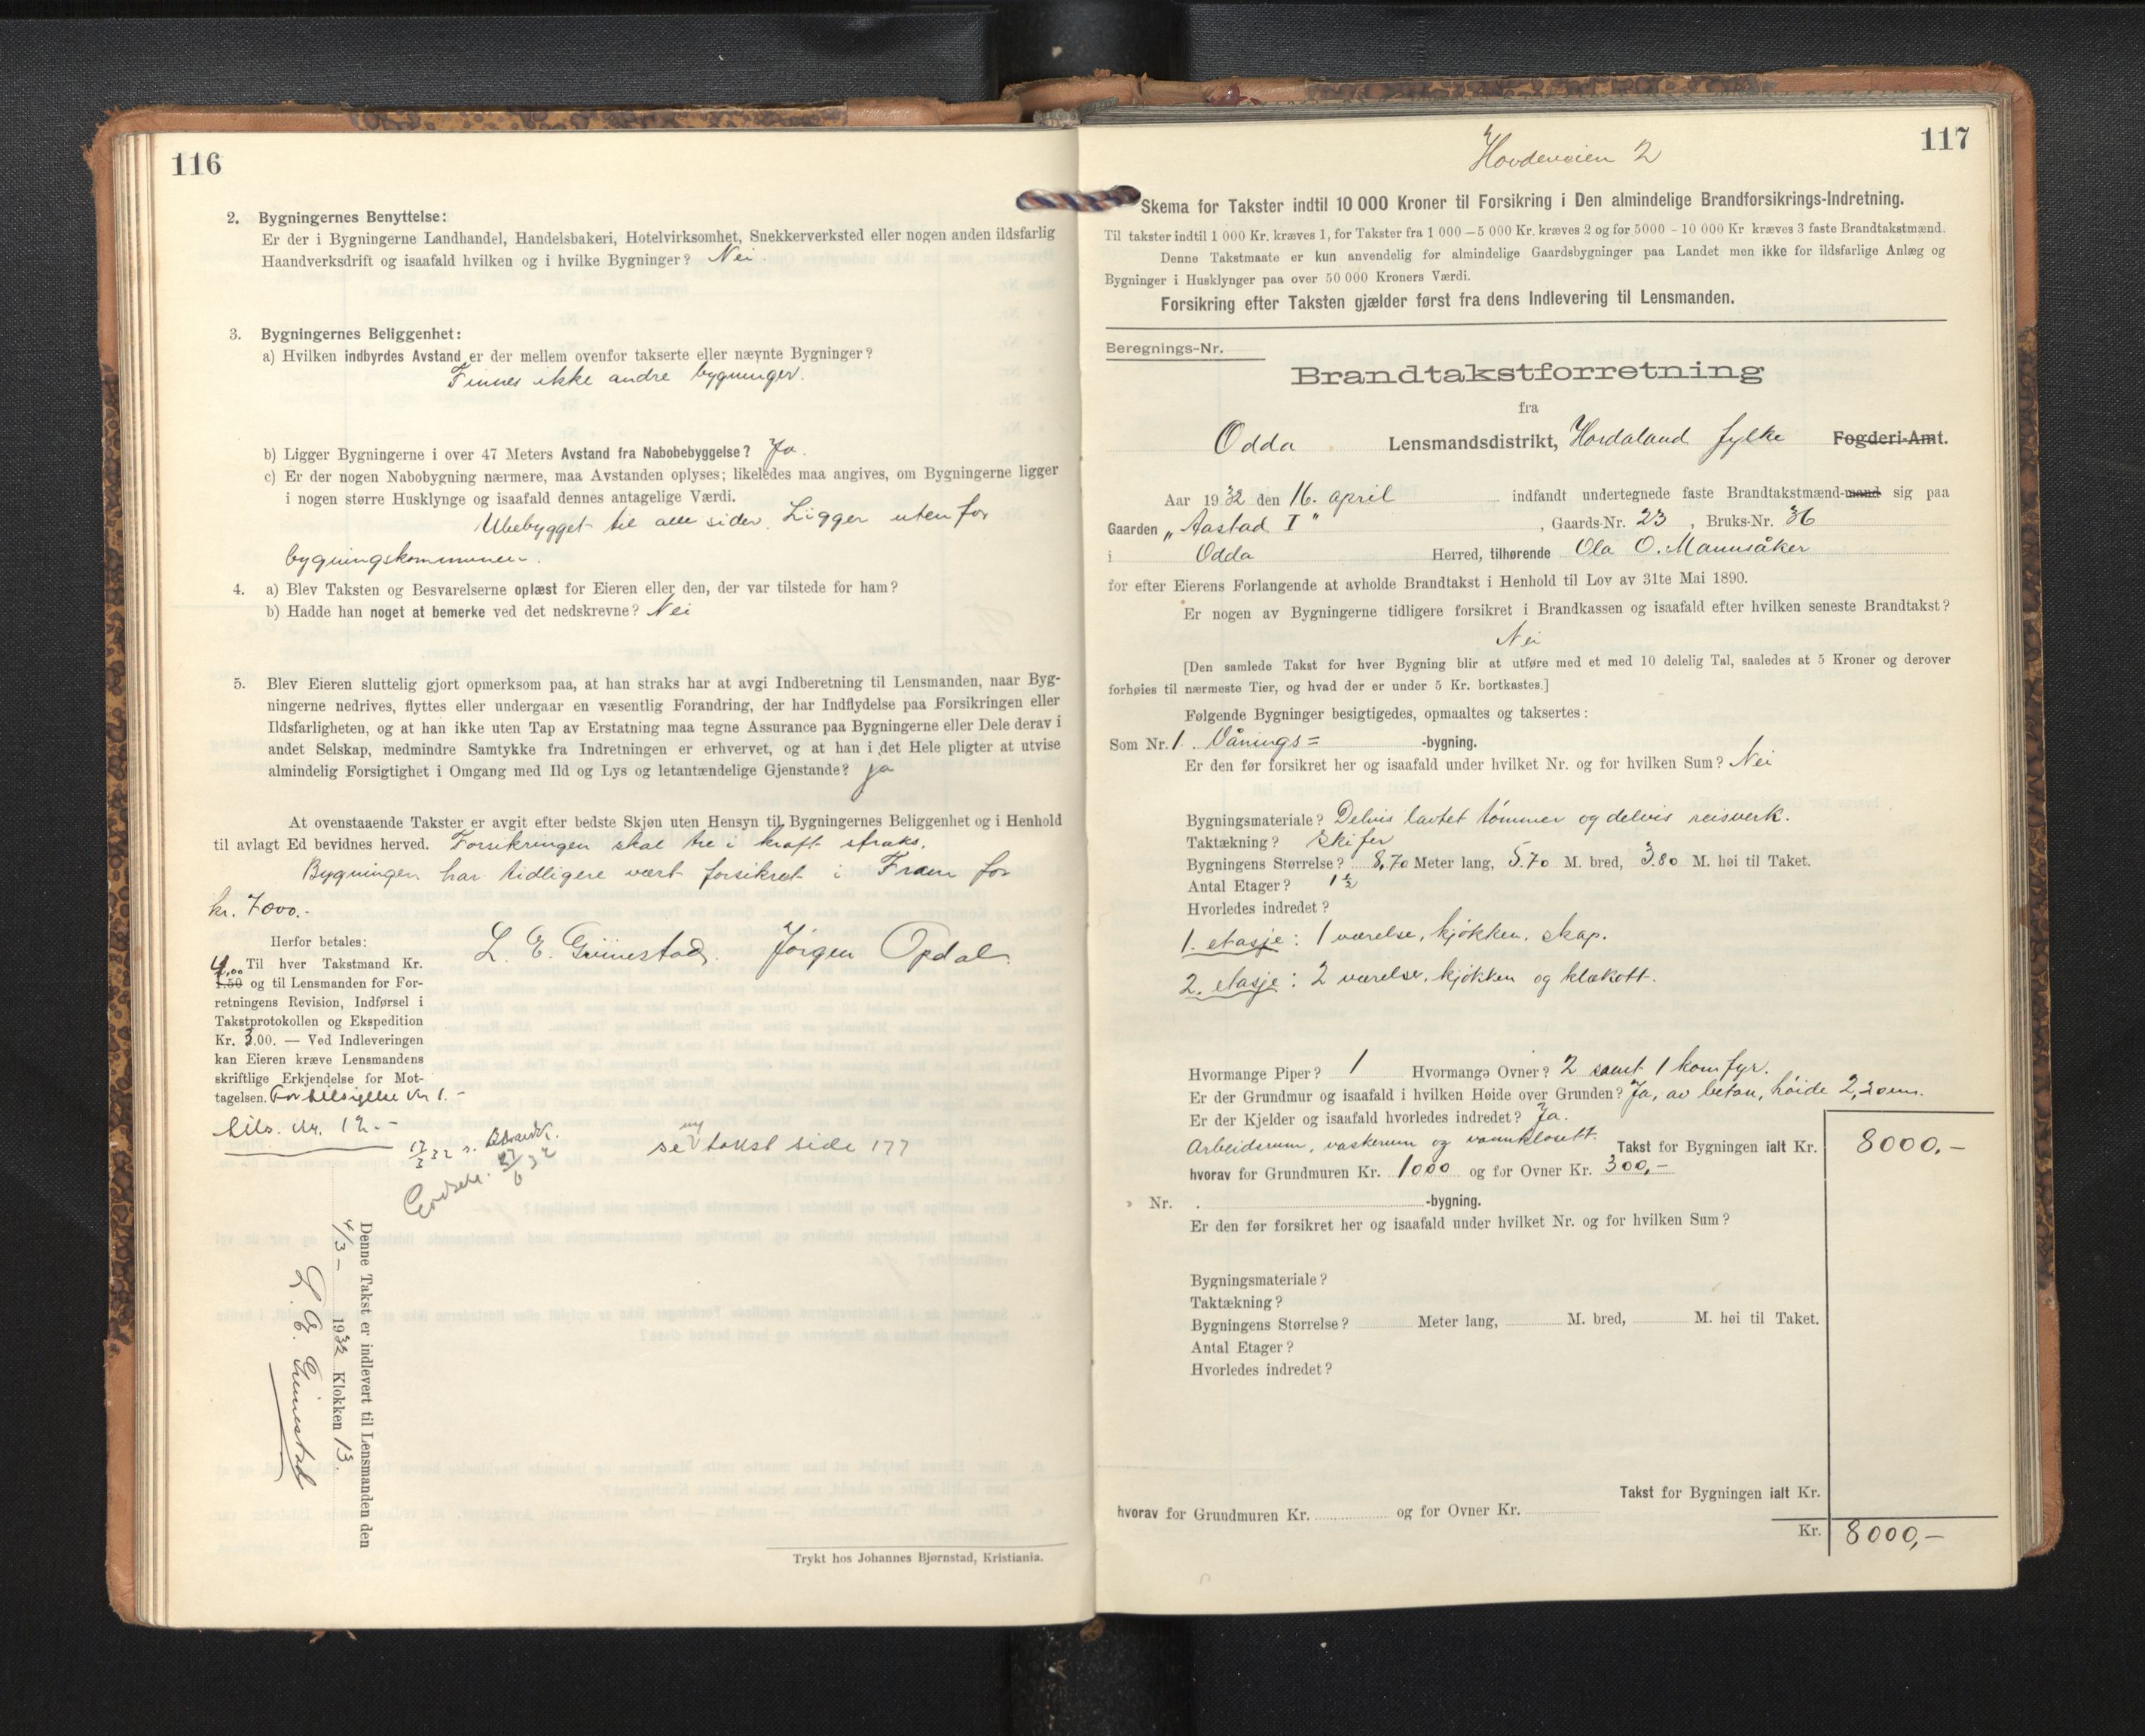 116
2. Bygningernes Benyttelse:
Er der i Bygningerne Landhandel, Handelsbakeri, Hotelvirksomhet, Snekkerverksted eller nogen anden ildsfarlig
Haandverksdrift og isaafald hvilken og i hvilke Bygninger? Nei.
3. Bygningernes Beliggenhet:
a) Hvilken indbyrdes Avstand er der mellem ovenfor takserte eller nævnte Bygninger?
Finnes ikke andre bygninger.
b) Ligger Bygningerne i over 47 Meters Avstand fra Nabobebyggelse? Ja.
c) Er der nogen Nabobygning nærmere, maa Avstanden oplyses; likeledes maa angives, om Bygningerne ligger
i nogen større Husklynge og isaafald dennes antagelige Værdi.
Ubebygget til alle sider. Ligger uten for
bygningskommunen.
4. a) Blev Taksten og Besvarelserne oplæst for Eieren eller den, der var tilstede for ham?
b) Hadde han noget at bemerke ved det nedskrevne? Nei
5. Blev Eieren sluttelig gjort opmerksom paa, at han straks har at avgi Indberetning til Lensmanden, naar Byg-
ningerne nedrives, flyttes eller undergaar en væsentlig Forandring, der har Indflydelse paa Forsikringen eller
Ildsfarligheten, og at han ikke uten Tap av Erstatning maa tegne Assurance paa Bygningerne eller Dele derav i
andet Selskap, medmindre Samtykke fra Indretningen er erhvervet, og at han i det Hele pligter at utvise
almindelig Forsigtighet i Omgang med Ild og Lys og letantændelige Gjenstande? ja
At ovenstaaende Takster er avgit efter bedste Skjøn uten Hensyn til Bygningernes Beliggenhet og i Henhold
til avlagt Ed bevidnes herved. Forsikringen skal tre i kraft straks.
Bygningen har tidligere vært forsikret i Fram for
kr. 7000.-
L. E. Grimestad. Jørgen Opdal
Herfor betales:
4,00 Til hver Takstmand Kr.
1.50 og til Lensmanden for For-
retningens Revision, Indførsel i
Takstprotokollen og Ekspedition
Kr. 3.00. — Ved Indleveringen
kan Eieren kræve Lensmandens
skriftlige Erkjendelse for Mot-
tagelsen. For tilsigelse Kr 1.-
tils. kr. 12.-
se ny takst side 177
Denne Takst er indlevert til Lensmanden den
4/3 – 1932 Klokken 13.
L. E. Grimestad
Trykt hos Johannes Bjørnstad, Kristiania.
117
Hovdeveien 2
Skema for Takster indtil 10 000 Kroner til Forsikring i Den almindelige Brandforsikrings-Indretning.
Til takster indtil 1 000 Kr. kræves 1, for Takster fra 1 000 – 5 000 Kr. kræves 2 og for 5000 – 10 000 Kr kræves 3 faste Brandtakstmænd.
Denne Takstmaate er kun anvendelig for almindelige Gaardsbygninger paa Landet men ikke for ildsfarlige Anlæg og
Bygninger i Husklynger paa over 50 000 Kroners Værdi.
Forsikring efter Taksten gjælder først fra dens Indlevering til Lensmanden.
Beregnings-Nr.
Brandtakstforretning
fra
Odda Lensmandsdistrikt, Hordaland fylke Fogderi-Amt.
Aar 1932 den 16. april indfandt undertegnede faste Brandtakstmænd-mand sig paa
Gaarden „Aastad I", Gaards-Nr. 23, Bruks-Nr. 36
i Odda Herred, tilhørende Ola O. Mannsåker
for efter Eierens Forlangende at avholde Brandtakst i Henhold til Lov av 31te Mai 1890.
Er nogen av Bygningerne tidligere forsikret i Brandkassen og isaafald efter hvilken seneste Brandtakst?
Nei
[Den samlede Takst for hver Bygning blir at utføre med et med 10 delelig Tal, saaledes at 5 Kroner og derover
forhøies til nærmeste Tier, og hvad der er under 5 Kr. bortkastes.]
Følgende Bygninger besigtigedes, opmaaltes og taksertes:
Som Nr. 1. Vånings= -bygning.
Er den før forsikret her og isaafald under hvilket Nr. og for hvilken Sum? Nei
Bygningsmateriale? Delvis lavtet tømmer og delvis reisverk.
Taktækning? Skifer
Bygningens Størrelse? 8,70 Meter lang, 5.70 M. bred, 3.80 M. høi til Taket.
Antal Etager? 1½
Hvorledes indredet?
1. etasje: 1 værelse, kjøkken, skap.
2. etasje: 2 værelse, kjøkken og klækott.
Hvormange Piper? 1 Hvormange Ovner? 2 samt 1 komfyr.
Er der Grundmur og isaafald i hvilken Høide over Grunden? Ja, av beton, høide 2,20 m.
Er der Kjelder og isaafald hvorledes indredet? Ja.
Arbeidsrum, vaskerum og vannklosett. Takst for Bygningen ialt Kr. 8000,-
hvorav for Grundmuren Kr. 1000 og for Ovner Kr. 300,-
» Nr. -bygning.
Er den før forsikret her og isaafald under hvilket Nr. og for hvilken Sum?
Bygningsmateriale?
Taktækning?
Bygningens Størrelse? Meter lang, M. bred, M. høi til Taket.
Antal Etager?
Hvorledes indredet?
Takst for Bygningen ialt Kr.
hvorav for Grundmuren Kr. og for Ovner Kr.
Kr. 8000,-